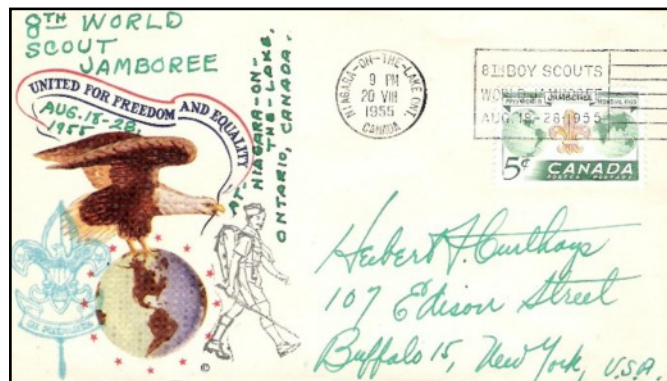 8TH WORLD
SCOUT
JAMBOREE
UNITED FOR FREEDOM AND EQUALITY
AUG. 18-28,
1955
AT-
NIAGARA-ON-
THE-LAKE,
ONTARIO, CANADA.
©
NIAGARA-ON-THE-LAKE ONT.
9 PM
20 VIII
1955
CANADA
8TH BOY SCOUTS
WORLD JAMBOREE
AUG. 18-28 1955
5¢ CANADA
POSTES POSTAGE
Herbert
107 Edison Street
Buffalo 15, New York, U.S.A.